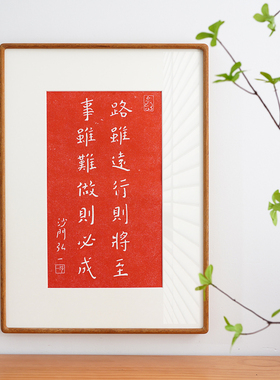 路雖遠行則將至
事雖難做則必成
沙門弘一